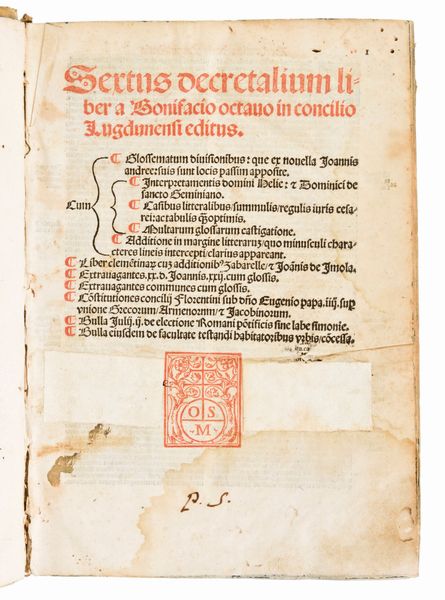 1
Sextus decretalium li-
ber a Bonifacio octauo in concilio
Lugdunensi editus.
Cum
¶ Glossematum diuisionibus: que ex nouella Joannis
andree: suis sunt locis passim apposite.
¶ Interpretamentis domini Helie: ⁊ Dominici de
sancto Geminiano.
¶ Casibus litteralibus/summulis/regulis iuris cesa-
rei: ac tabulis q̃optimis.
¶ Multarum glossarum castigatione.
¶ Additione in margine litteraruz/quo minusculi chara-
cteres lineis intercepti/clarius appareant.
¶ Liber clemẽtinaꝝ cuz additionibꝰ Zabarelle/⁊ Joãnis de Imola.
¶ Extrauagantes .xx. d. Joannis .xxij. cum glossis.
¶ Extrauagantes communes cum glossis.
¶ Cõstitutiones concilij Florentini sub dño Eugenio papa .iiij. sup
vnione Grecorum/Armenorum/⁊ Jacobinorum.
¶ Bulla Julij .ij. de electione Romani põtificis sine labe simonie.
¶ Bulla eiusdem de facultate testandi habitatoribus vrbis/cõcessa.
O S
M
P. S.